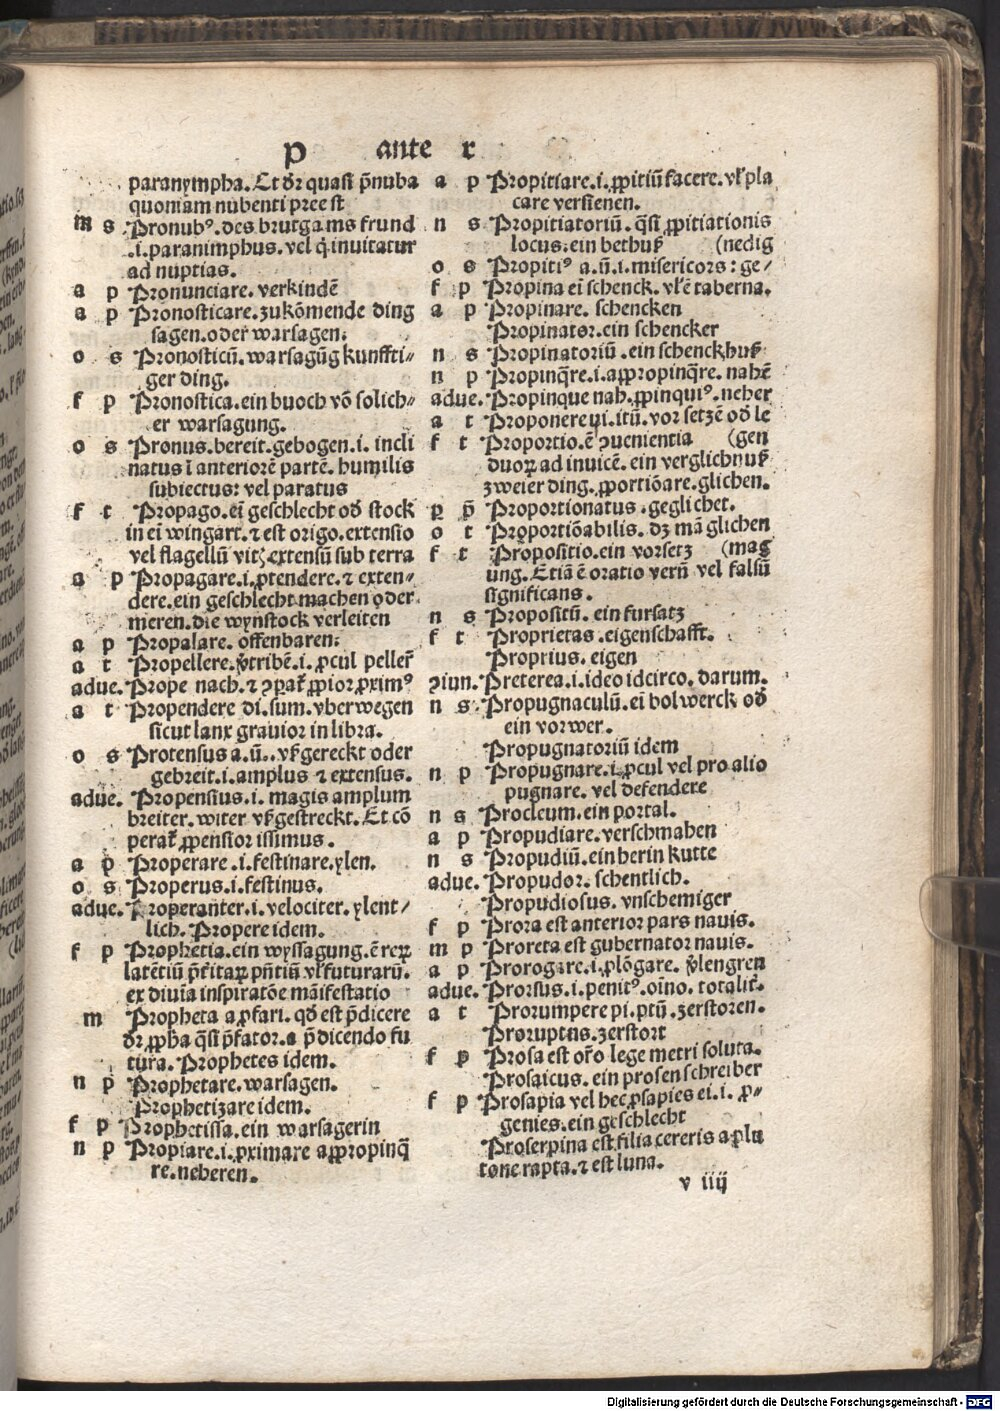 p ante r
paranympha. Et dr̄ quasi p̄nuba
quoniam nubenti preest
m s Pronubꝰ. des brutgams frund
.i. paranimphus. vel q̇ inuitatur
ad nuptias.
a p Pronunciare. verkindē
a p Pronosticare. zukōmende ding
sagen. oder warsagen.
o s Pronosticū. warsagūg kunffti⸗
ger ding.
f p Pronostica. ein buoch vō solich⸗
er warsagung.
o s Pronus. bereit. gebogen. i. incli
natus ī anteriorē partē. humilis
subiectus: vel paratus
f t Propago. eī geschlecht od̄ stock
in eī wingart. ⁊ est origo. extensio
vel flagellū vitꝫ extensū sub terra
a p Propagare. i. ꝓtendere. ⁊ exten⸗
dere. ein geschlecht machen oder
meren. die wynstock verleiten
a p Propalare. offenbaren.
a t Propellere. v̄tribē. i. ꝓcul peller̄
adue. Prope nach. ⁊ ꝯpat᷑ ꝓpior ꝓximꝰ
a t Propendere di. sum. vberwegen
sicut lanx grauior in libra.
o s Protensus a. ū.. vß gereckt oder
gebreit. i. amplus ⁊ extensus.
adue. Propensius. i. magis amplum
breiter. witer vß gestreckt. Et cō
perat᷑ ꝓpensior issimus.
a p Properare. i. festinare. ylen.
o s Properus. i. festinus.
adue. Properanter. i. velociter. ylent⸗
lich. Propere idem.
f p Prophetia. ein wyssagung. ē reꝝ
latētiū p̄t̄itaꝝ pn̄tiū vl̓ futurarū.
ex diuīa inspiratōe māifestatio
m Propheta a ꝓfari. qd̄ est p̄dicere
dr̄ ꝓpha q̄si p̄fator. a p̄dicendo fu
tura. Prophetes idem.
n p Prophetare. warsagen.
Prophetizare idem.
f p Prophetissa. ein warsagerin
n p Propiare. i. ꝓximare aꝓpropinq̄
re. neheren.
a p Propitiare. i. ꝓpitiū facere. vl̓ pla
care versienen.
n s Propitiatoriū. q̄si ꝓpitiationis
locus. ein bethuß (nedig
o s Propitiꝰ a. ū. i. misericors: ge⸗
f p Propina eī schenck. vl̓ ē taberna.
a p Propinare. schencken
Propinator. ein schencker
n s Propinatoriū. ein schenckhuß
n p Propinq̄re. i. aꝓpropinq̄re. nahē
adue. Propinque nah. ꝓpinquiꝰ. neher
a t Proponere ui. itū. vor setzē od̄ le
f t Proportio. ē ꝯuenientia (gen
duoꝝ ad inuicē. ein verglichnuß
zweier ding. ꝓportiōare. glichen.
ꝑ p̄ Proportionatus. geglichet.
o t Proportiōabilis. dz mā glichen
f t Propositio. ein vorsetz (mag
ung. Etiā ē oratio verū vel falsū
significans.
n s Propositū. ein fursatz
f t Proprietas. eigenschafft.
Proprius. eigen
ꝯiun. Preterea. i. ideo idcirco. darum.
n s Propugnaculū. eī bolwerck od̄
ein vorwer.
Propugnatoriū idem
n p Propugnare. i. ꝓcul vel pro alio
pugnare. vel defendere
n s Procleum. ein portal.
a p Propudiare. verschmahen
n s Propudiū. ein herin kutte
adue. Propudor. schentlich.
Propudiosus. vnschemiger
f p Prora est anterior pars nauis.
m p Proreta est gubernator nauis.
a p Prorogare. i. ꝓlōgare. v̄lengren
adue. Prorsus. i. penitꝰ. oīno. totalit᷑.
a t Prorumpere pi. ptū. zerstoren.
Proruptus. zerstort
f p Prosa est or̄o lege metri soluta.
Prosaicus. ein prosen schreiber
f p Prosapia vel hec ꝓsapies ei. i. ꝓ⸗
genies. ein geschlecht
Proserpina est filia cereris a plu
tone rapta. ⁊ est luna.
v iiij
Digitalisierung gefördert durch die Deutsche Forschungsgemeinschaft - DFG